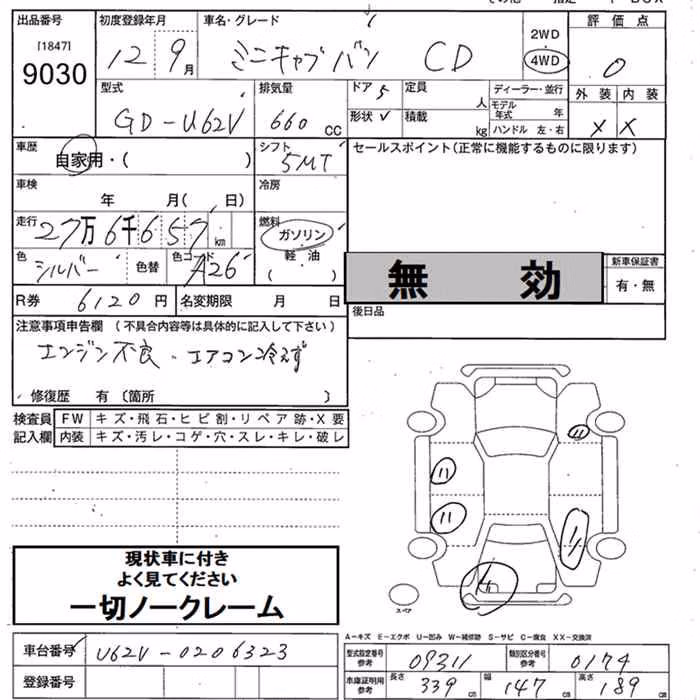 出品番号 初度登録年月 車名・グレード 2WD 評価点
[1847] 12 9月 ミニキャブバン CD 4WD 0
9030
型式 排気量 ドア 5 定員 人 ディーラー・並行 外装 内装
GD-U62V 660 CC 形状 V 積載 kg モデル年式 年 X X
ハンドル 左・右
車歴 自家用・( ) シフト 5MT セールスポイント(正常に機能するものに限ります)
車検 年 月( 日) 冷房
走行 27万6千657km 燃料 ガソリン
色 シルバー 色替 色コード A26 軽油 無効 新車保証書
( ) 有・無
R券 6120円 名変期限 月 日 後日品
注意事項申告欄(不具合内容等は具体的に記入して下さい)
エンジン不良・エアコン冷えず
修復歴 有(箇所 )
検査員 FW キズ・飛石・ヒビ割・リペア跡・X要
記入欄 内装 キズ・汚レ・コゲ・穴・スレ・キレ・破レ
現状車に付き
よく見てください
一切ノークレーム
スペア
A-キズ E-エクボ U-凹み W-補修跡 S-サビ C-腐食 XX-交換済
車台番号 U62V-0206323 型式指定番号 参考 09311 類別区分番号 参考 0174
登録番号 車庫証明用 参考 長さ 339cm 幅 147cm 高さ 189cm